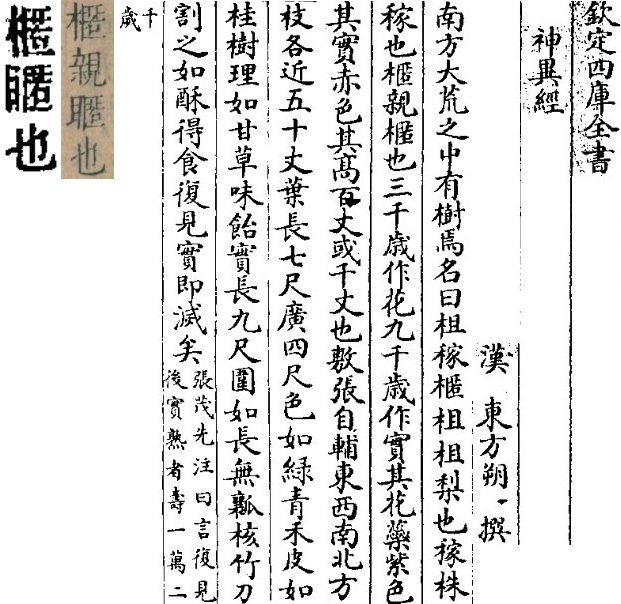 欽定四庫全書
神異經
漢 東方朔 撰
南方大荒之中有樹焉名曰柤稼㮏柤柤梨也稼株
稼也㮏親㮏也三千歳作花九千歳作實其花蘂紫色
其實赤色其髙百丈或千丈也敷張自輔東西南北方
枝各近五十丈葉長七尺廣四尺色如緑青禾皮如
桂樹理如甘草味飴實長九尺圍如長無瓤核竹刀
割之如酥得食復見實即滅矣
張茂先注曰言復見
後實熟者壽一萬二
千
歳
㮏親䁥也
㮏䁥也